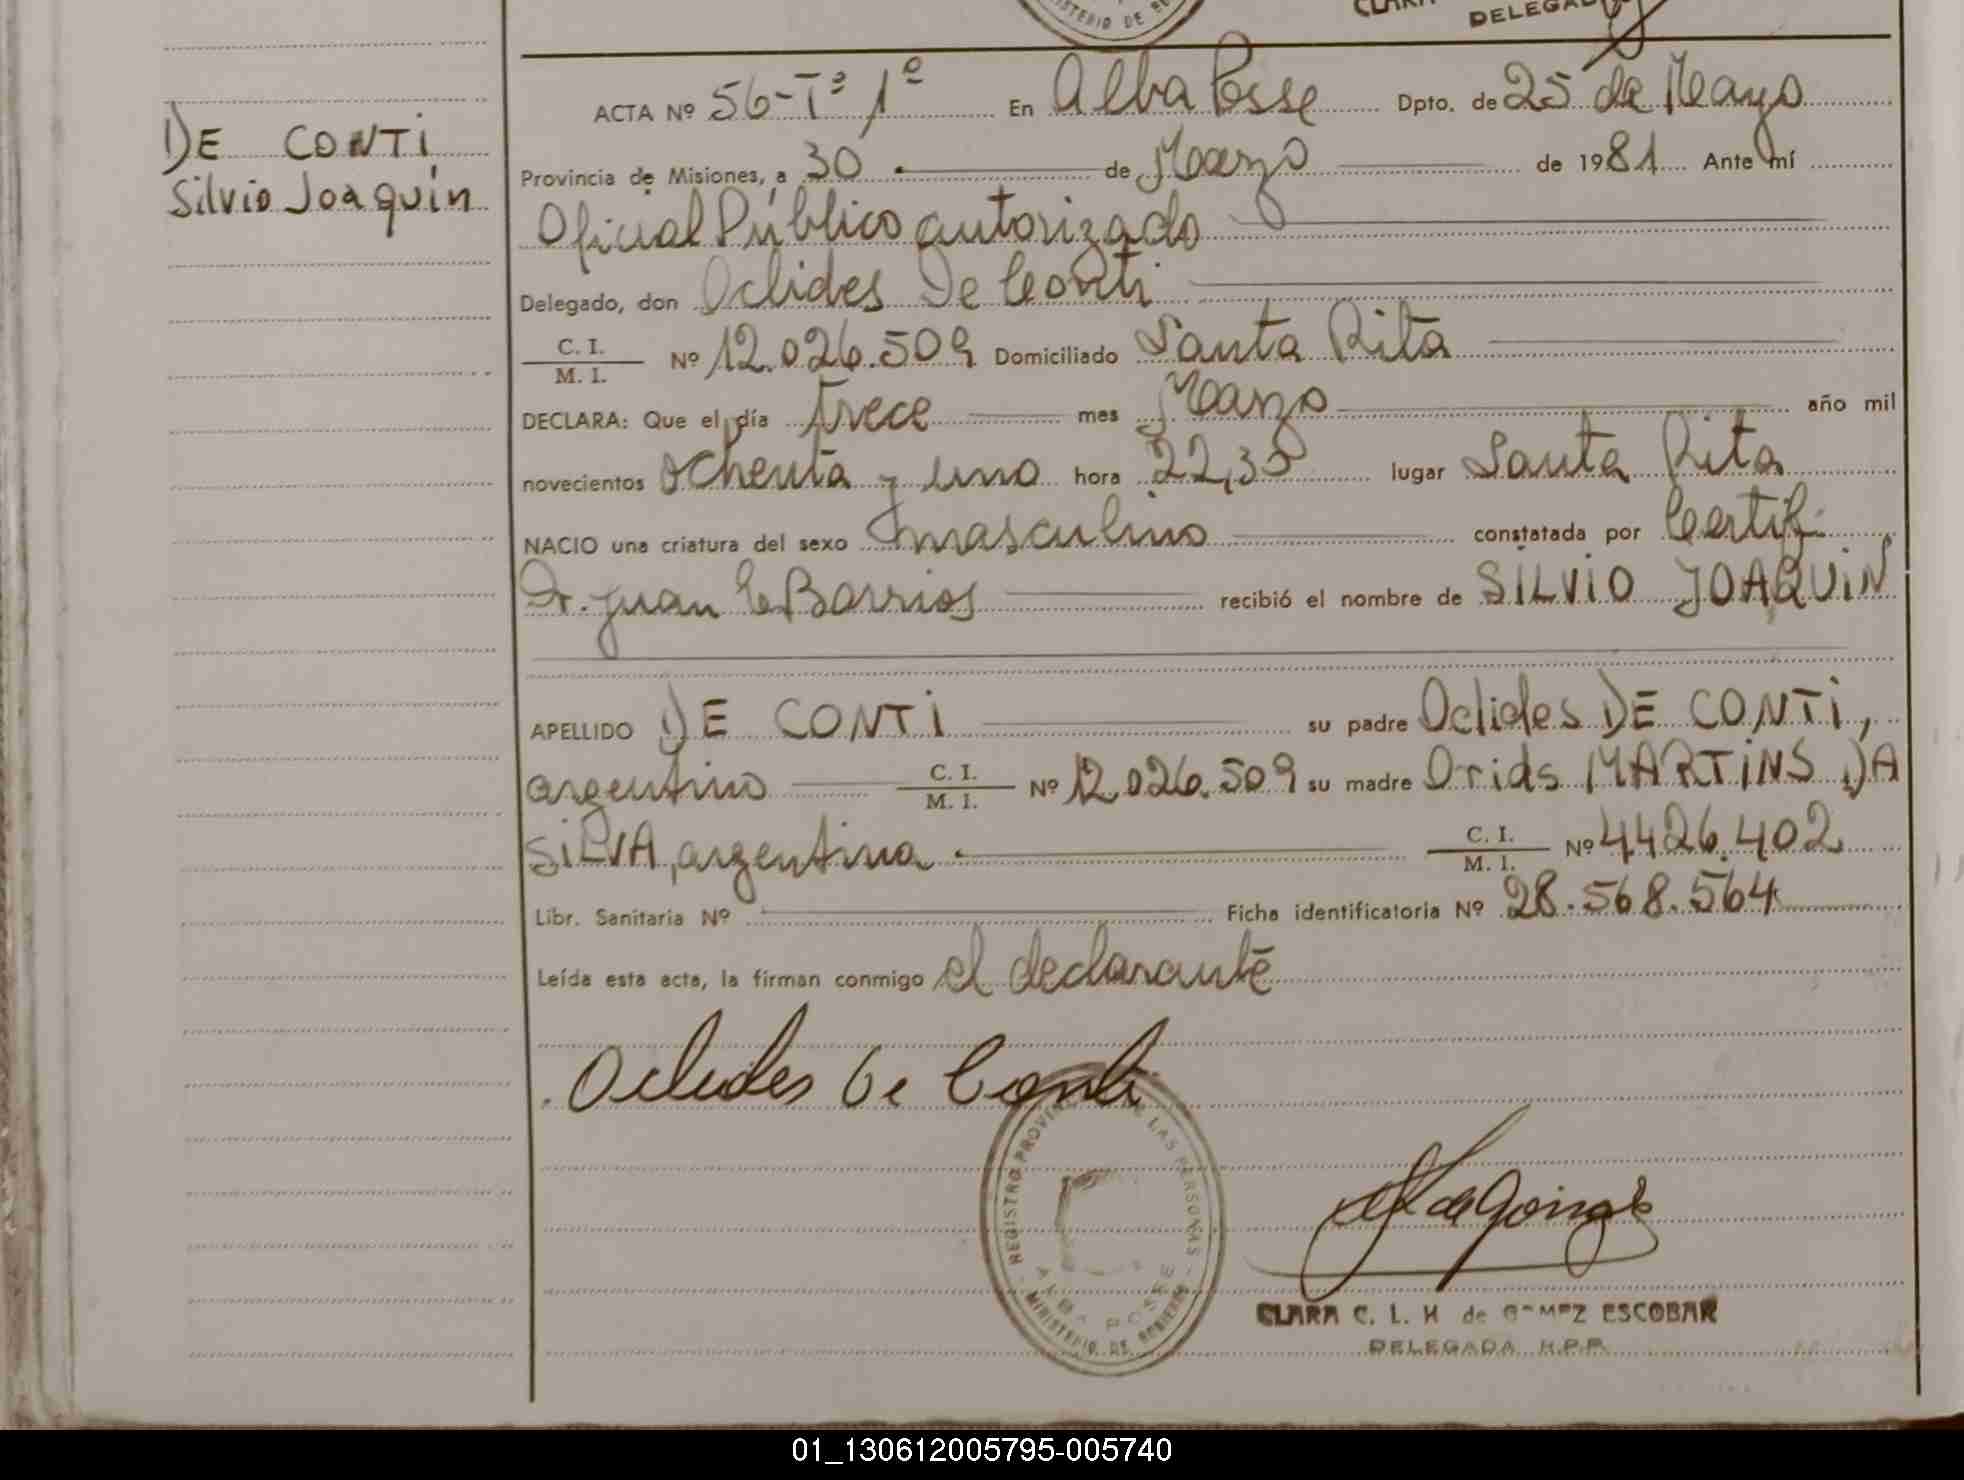 MINISTERIO DE
CLARA
DELEGAD
DE CONTI
Silvio Joaquín
ACTA Nº 56-Tº 1º En Alba Posse Dpto. de 25 de Mayo
Provincia de Misiones, a 30 de Marzo de 1981 Ante mí
Oficial Público autorizado
Delegado, don Oclides De Conti
C. I.
M. I. Nº 12.026.509 Domiciliado Santa Rita
DECLARA: Que el día trece mes Marzo año mil
novecientos ochenta y uno hora 22,30 lugar Santa Rita
NACIO una criatura del sexo masculino constatada por Certif.
Dr. Juan C Barrios recibió el nombre de SILVIO JOAQUIN
APELLIDO DE CONTI su padre Oclides DE CONTI,
argentino C. I.
M. I. Nº 12.026.509 su madre Orids MARTINS DA
SILVA, argentina C. I.
M. I. Nº 4426.402
Libr. Sanitaria Nº Ficha identificatoria Nº 28.568.564
Leída esta acta, la firman conmigo el declarante
Oclides De Conti
REGISTRO PROVINCIAL DE LAS PERSONAS
ALBA POSSE
MINISTERIO DE GOBIERNO
CLARA C. L. H de GOMEZ ESCOBAR
DELEGADA R.P.P.
01_130612005795-005740